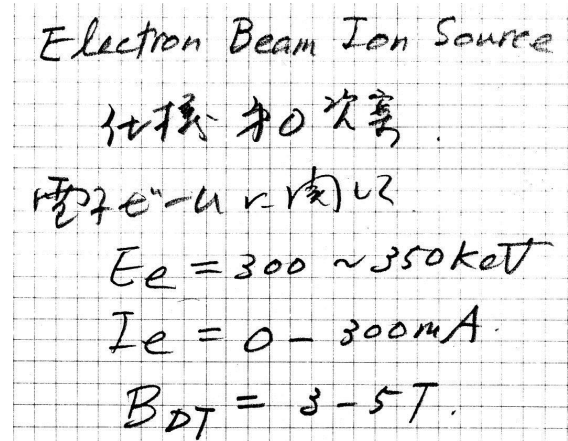 Electron Beam Ion Source
仕様 第0次案.
電子ビームに関して
Ee = 300 ~ 350 keV
Ie = 0 - 300mA.
B_DT = 3 - 5T.